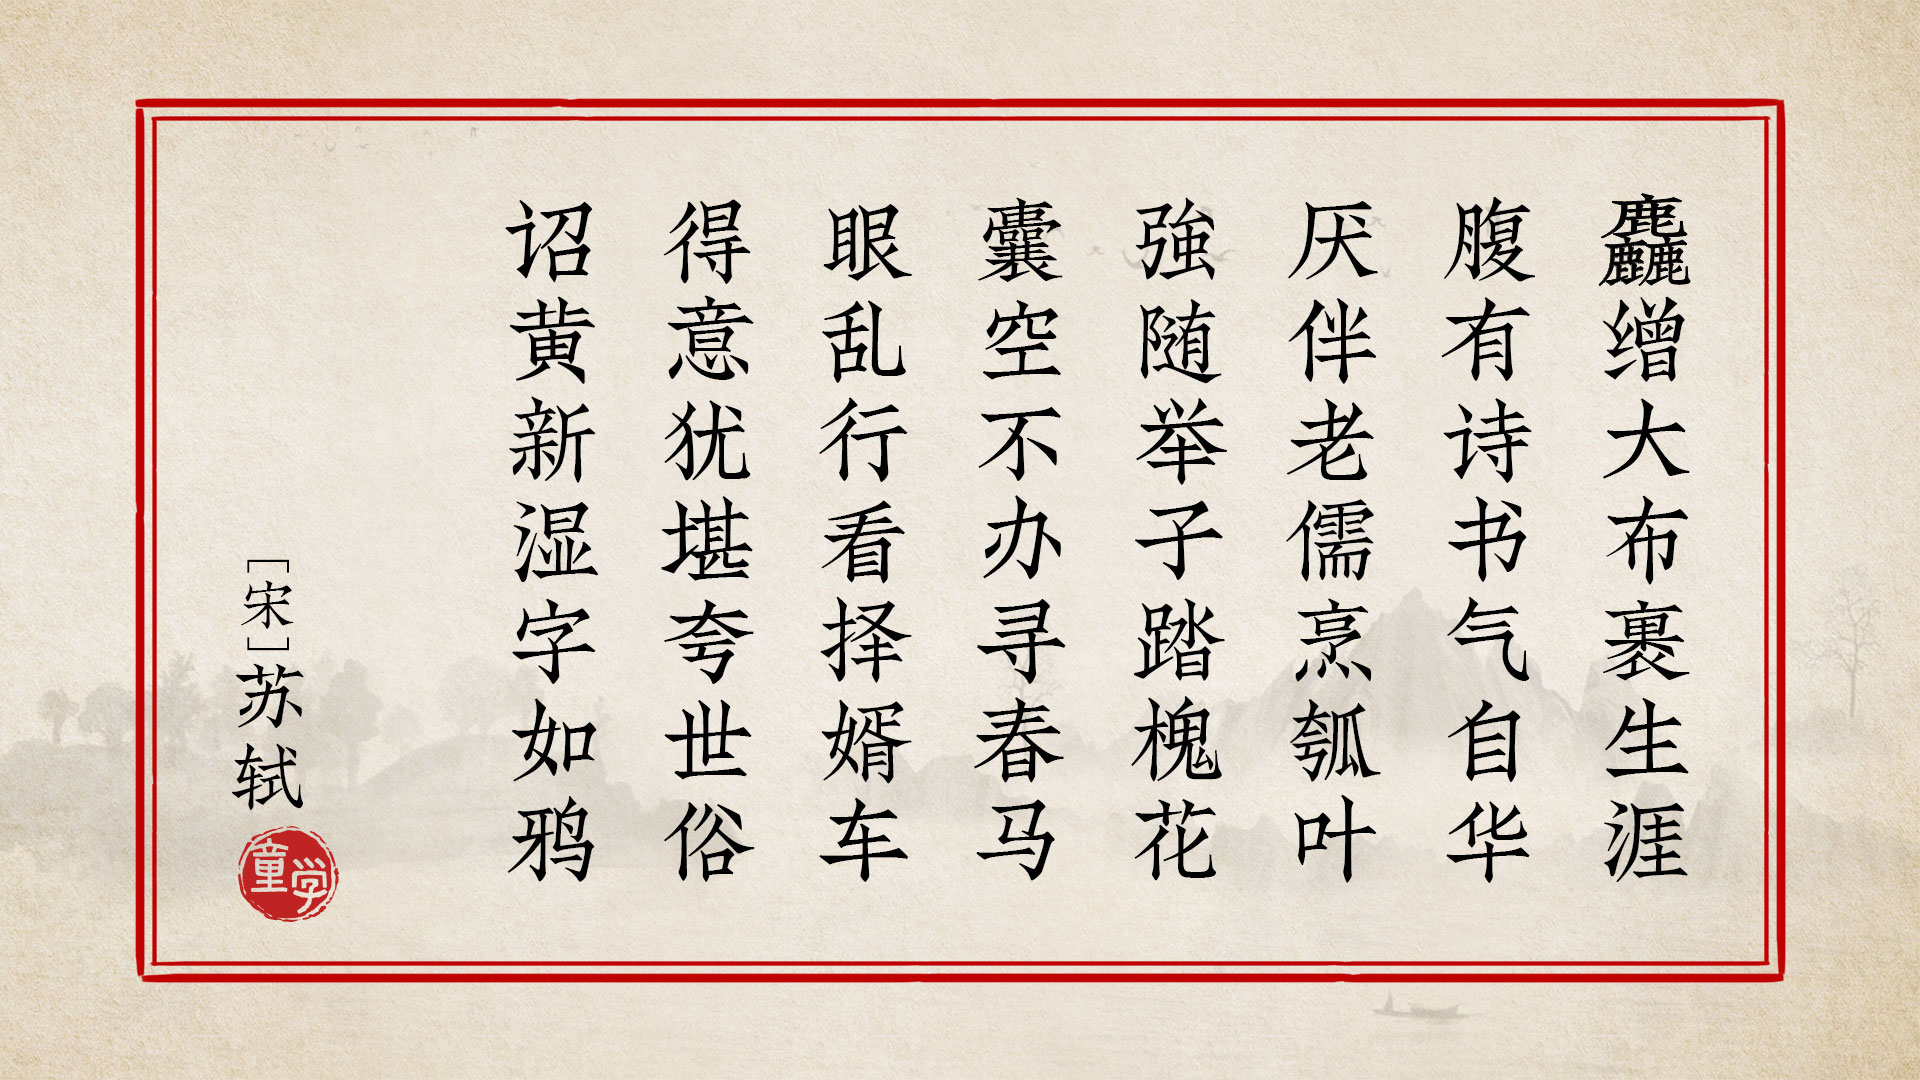 麤缯大布裹生涯
腹有诗书气自华
厌伴老儒烹瓠叶
強随举子踏槐花
囊空不办寻春马
眼乱行看择婿车
得意犹堪夸世俗
诏黄新湿字如鸦
［宋］苏轼
童学